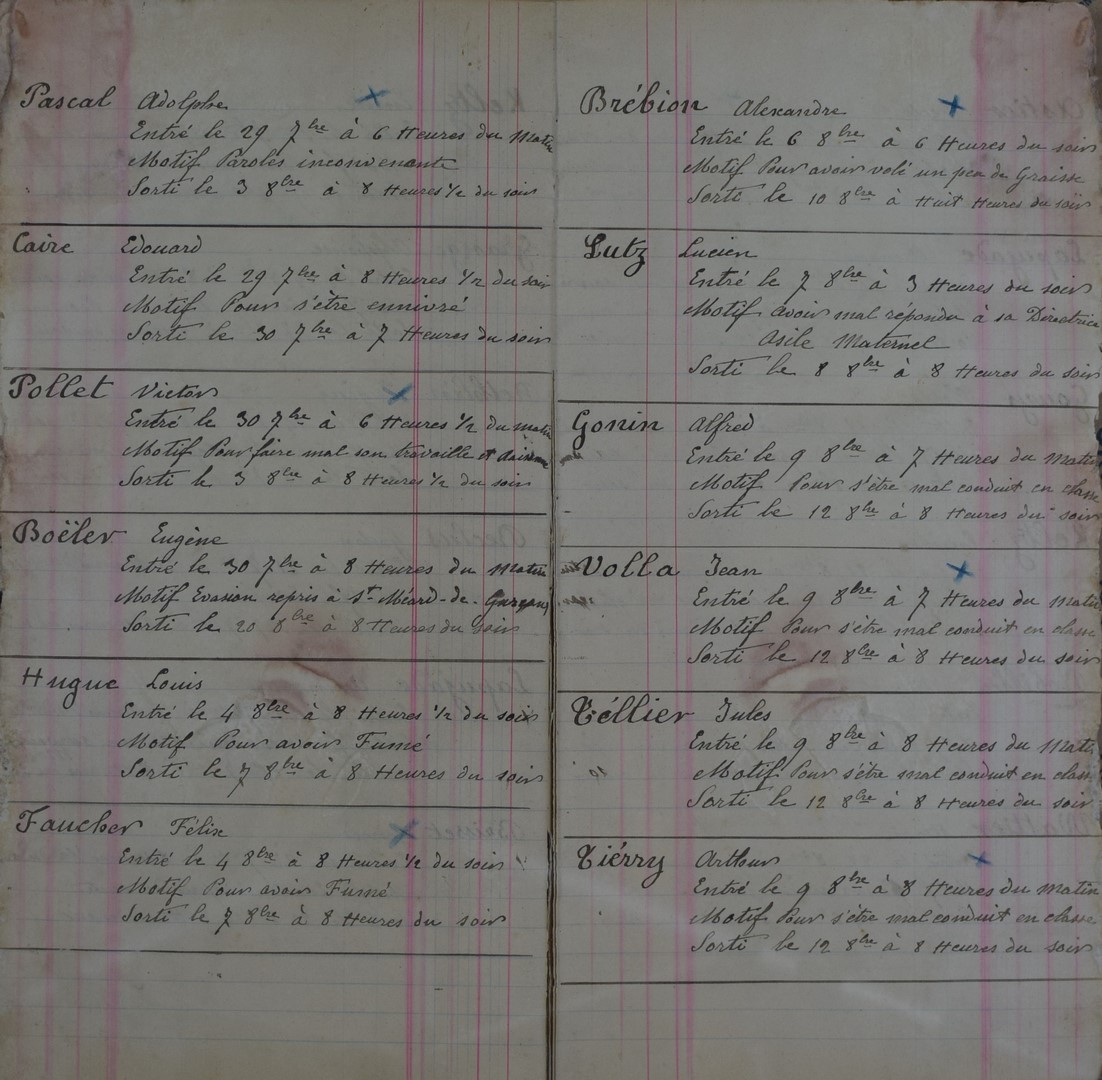 Pascal Adolphe
Entré le 29 7bre à 6 Heures du Matin
Motif Paroles inconvenante
Sorti le 3 8bre à 8 Heures 1/2 du soir
Caire Edouard
Entré le 29 7bre à 8 Heures 1/2 du soir
Motif Pour s'être ennivré
Sorti le 30 7bre à 7 Heures du soir
Pollet Victor
Entré le 30 7bre à 6 Heures 1/2 du matin
Motif Pour faire mal son travaille et
Sorti le 3 8bre à 8 Heures 1/2 du soir
Boëler Eugène
Entré le 30 7bre à 8 Heures du Matin
Motif Evasion repris à St-Méard-de-Gurçon
Sorti le 20 8bre à 8 Heures du soir
Hugue Louis
Entré le 4 8bre à 8 Heures 1/2 du soir
Motif Pour avoir Fumé
Sorti le 7 8bre à 8 Heures du soir
Faucher Félix
Entré le 4 8bre à 8 Heures 1/2 du soir
Motif Pour avoir Fumé
Sorti le 7 8bre à 8 Heures du soir
Brébion Alexandre
Entré le 6 8bre à 6 Heures du soir
Motif Pour avoir volé un peu de Graisse
Sorti le 10 8bre à Huit Heures du soir
Lutz Lucien
Entré le 7 8bre à 3 Heures du soir
Motif avoir mal répondu à sa Directrice
Asile Maternel
Sorti le 8 8bre à 8 Heures du soir
Gonin Alfred
Entré le 9 8bre à 7 Heures du Matin
Motif Pour s'être mal conduit en classe
Sorti le 12 8bre à 8 Heures du soir
Volla Jean
Entré le 9 8bre à 7 Heures du Matin
Motif Pour s'être mal conduit en classe
Sorti le 12 8bre à 8 Heures du soir
Téllier Jules
Entré le 9 8bre à 8 Heures du Matin
Motif Pour s'être mal conduit en classe
Sorti le 12 8bre à 8 Heures du soir
Tiérry Arthur
Entré le 9 8bre à 8 Heures du matin
Motif Pour s'être mal conduit en classe
Sorti le 12 8bre à 8 Heures du soir